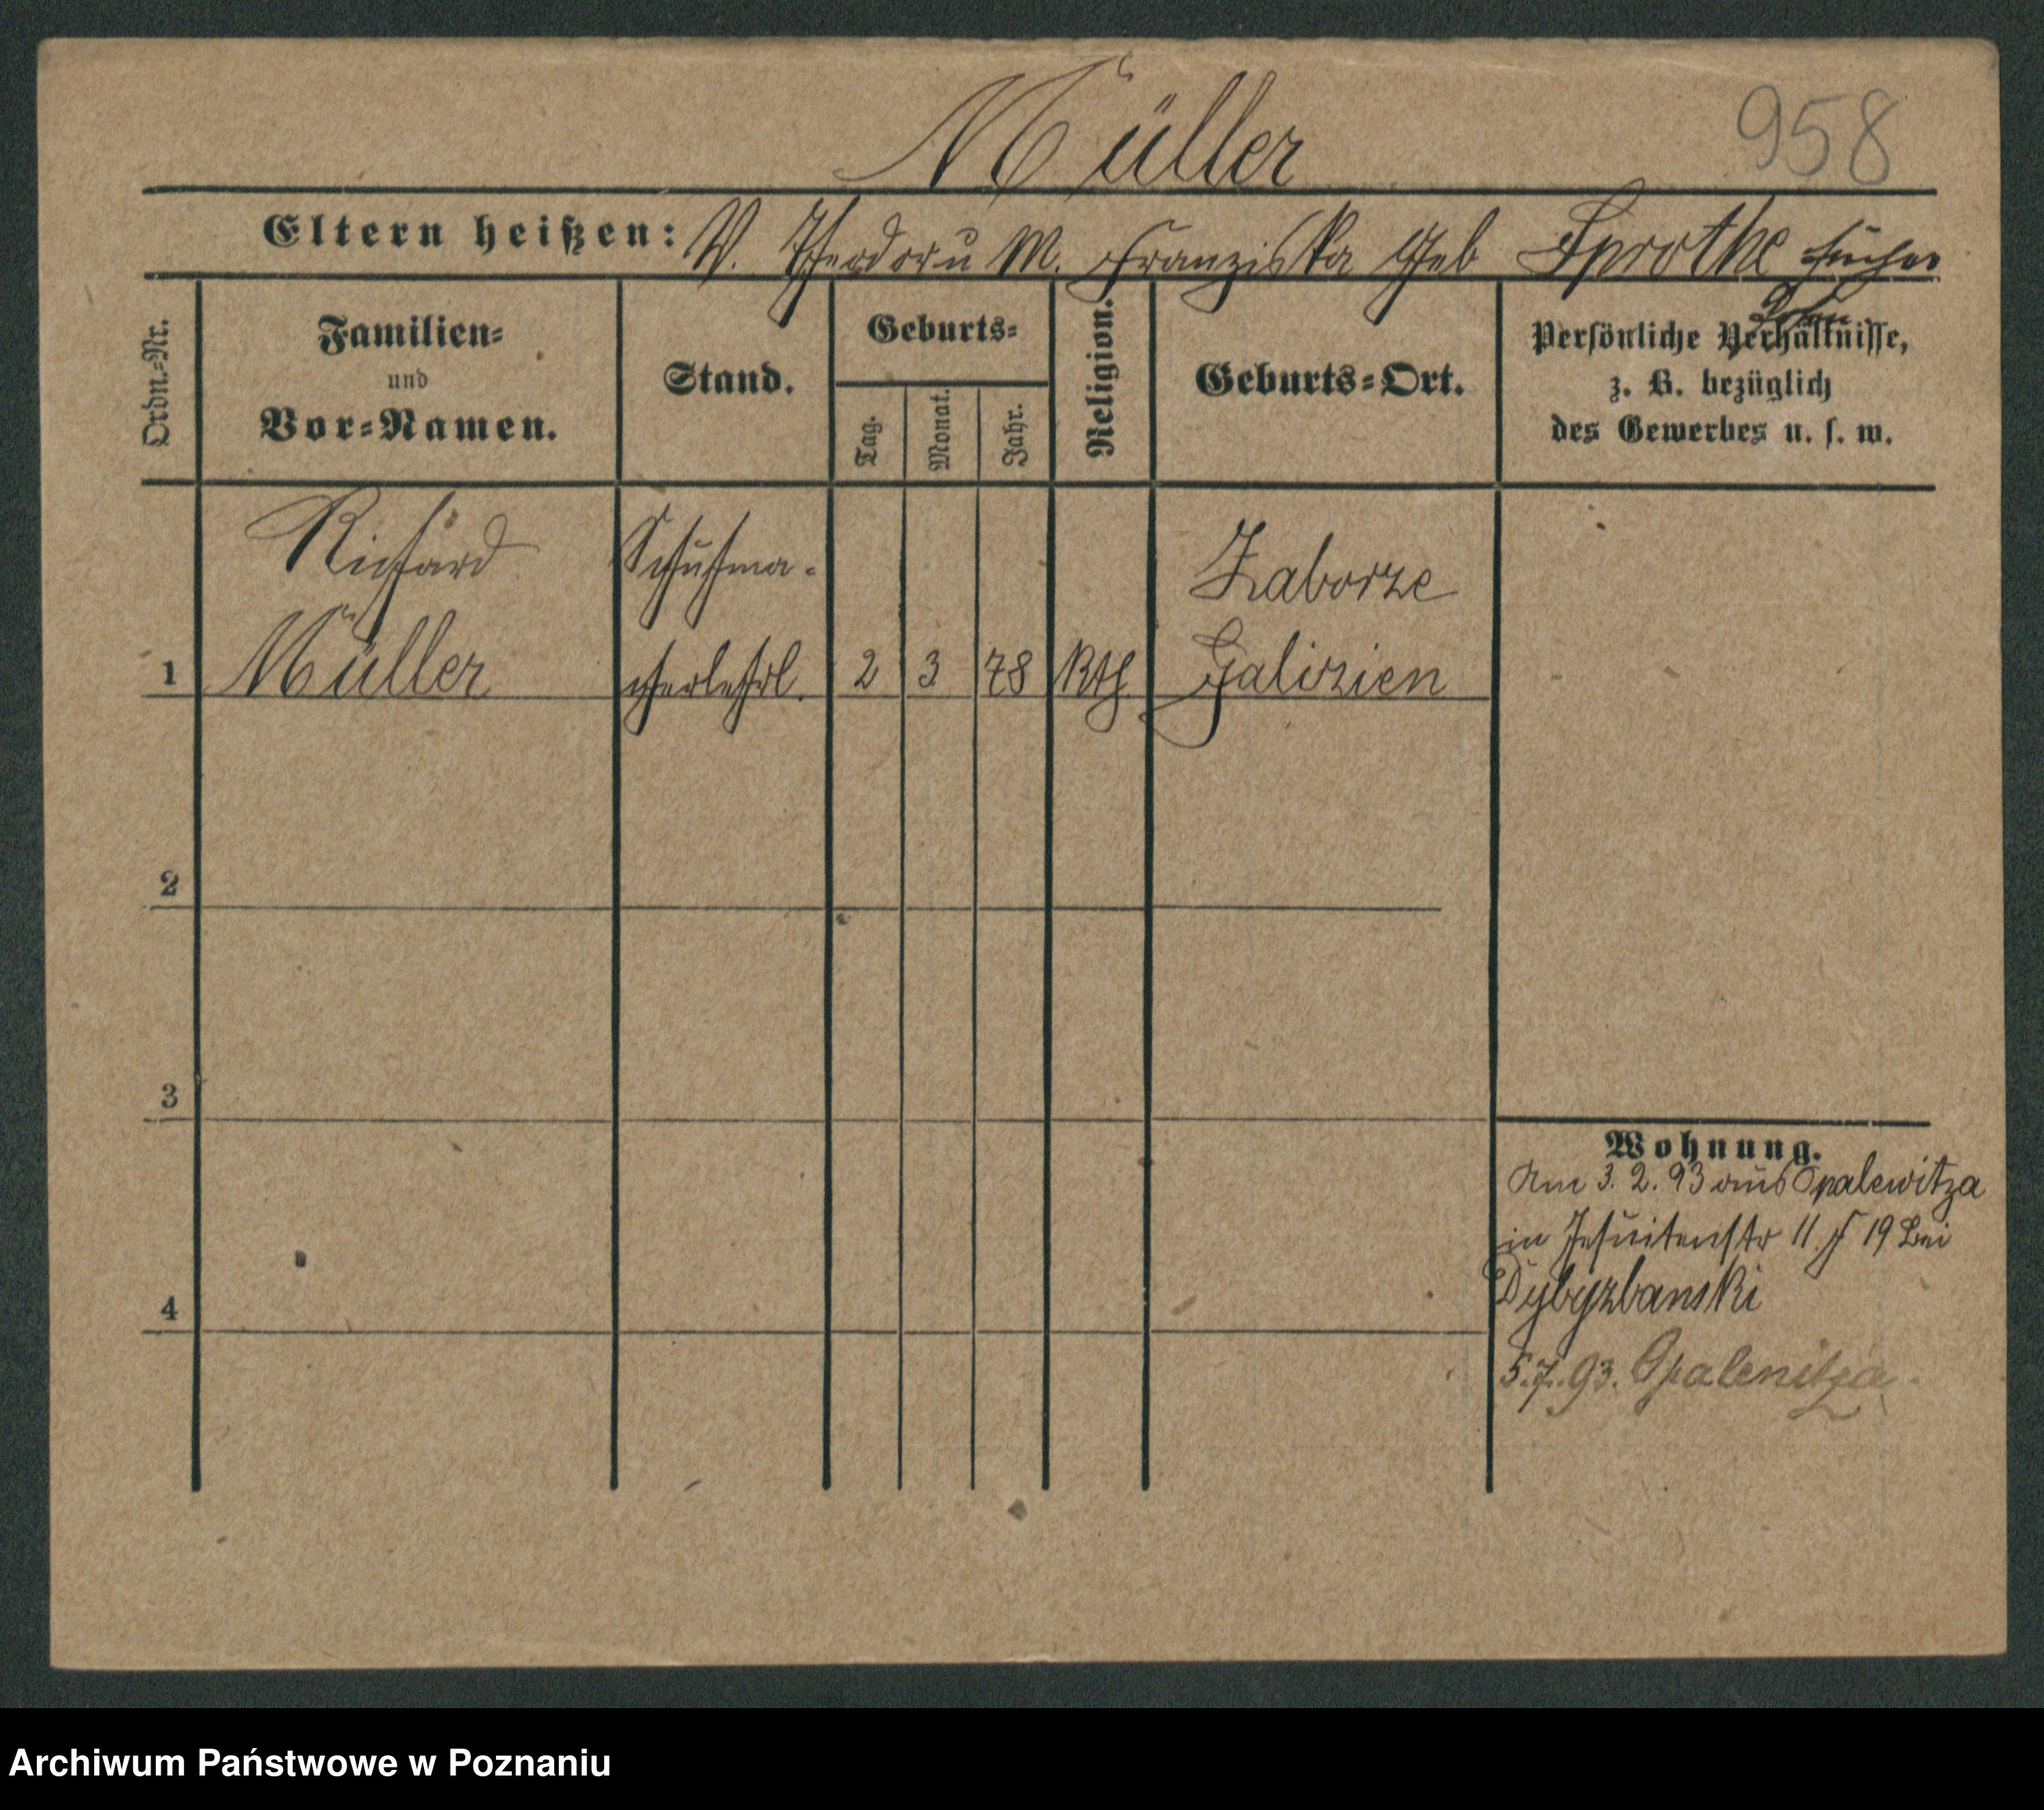 Müller
958
Eltern heißen: V. Theodor u M. Franziska Geb Sprothe
Ordn.-Nr.
Familien-
und
Vor-Namen.
Stand.
Geburts-
Tag.
Monat.
Jahr.
Religion.
Geburts-Ort.
Persönliche Verhältnisse,
z. B. bezüglich
des Gewerbes u. s. w.
Richard
Schuhma-
Zaborze
1 Müller cherlehrl. 2 3 78 Kth Galizien
2
3
4
Wohnung.
Am 3. 2. 93 aus Opalewitza
in Jesuitenstr 11. 19 bei
Dybyzbanski
5.7.93. Opalenitza
Archiwum Państwowe w Poznaniu